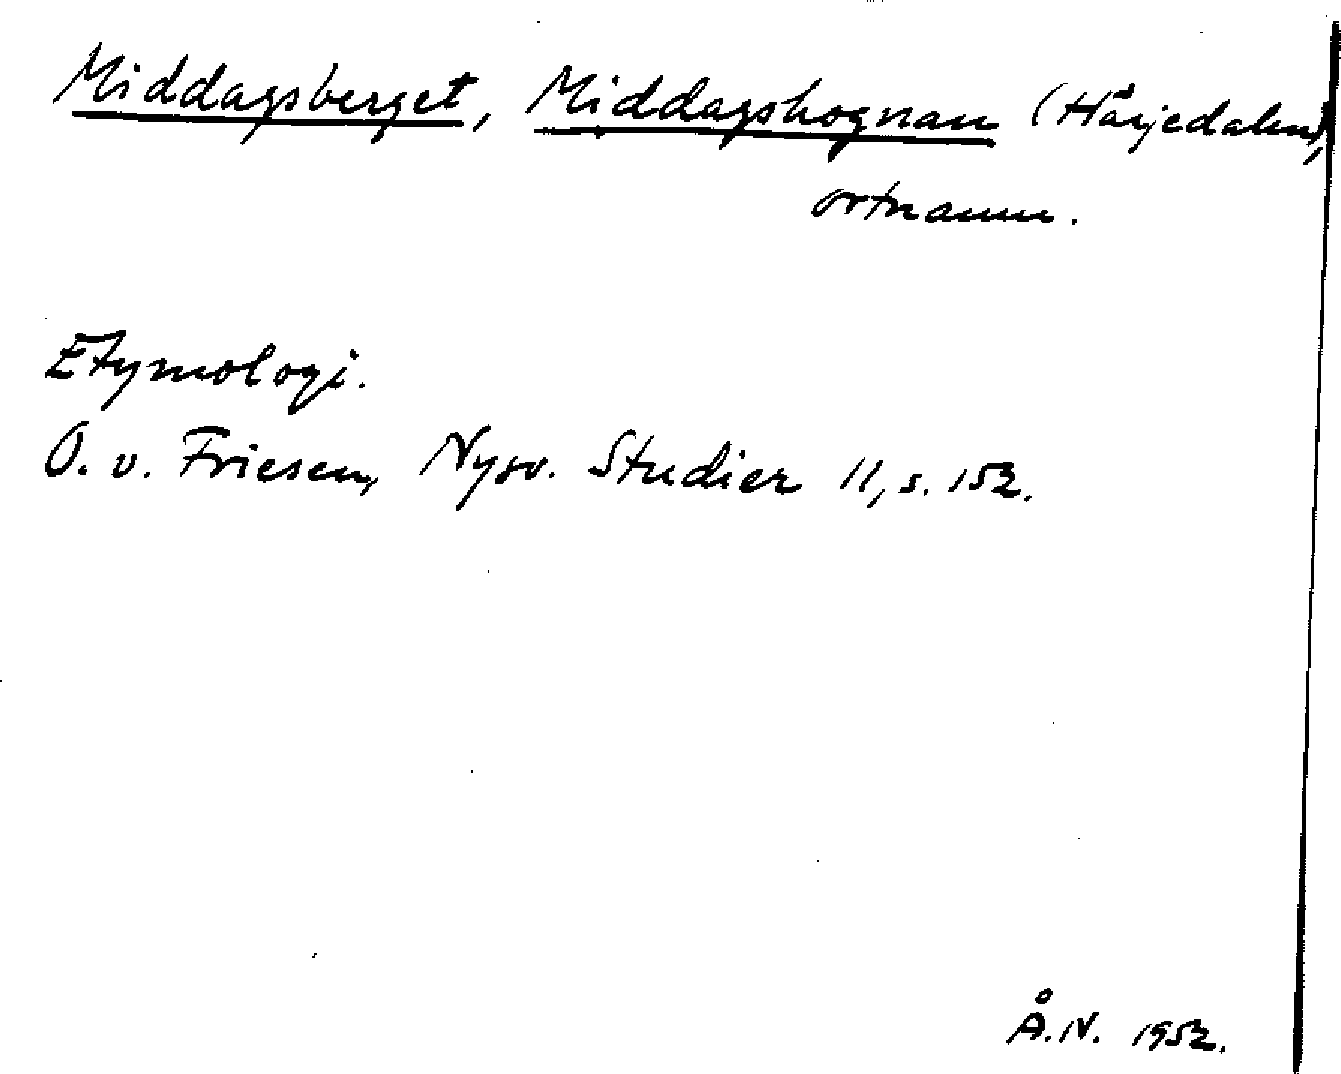 Middagsberget, Middagshognan (Härjedalen),
ortnamn.
Etymologi.
O. v. Friesen, Nysv. Studier 11, s. 152.
Å. N. 1952.